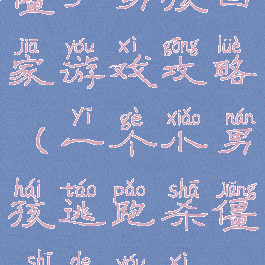 jiā yóu xì gōng lüè
家游戏攻略
Yī gè xiǎo nán
（一个小男
hái táo pǎo shā jiāng
孩逃跑杀僵
shī de yóu xì